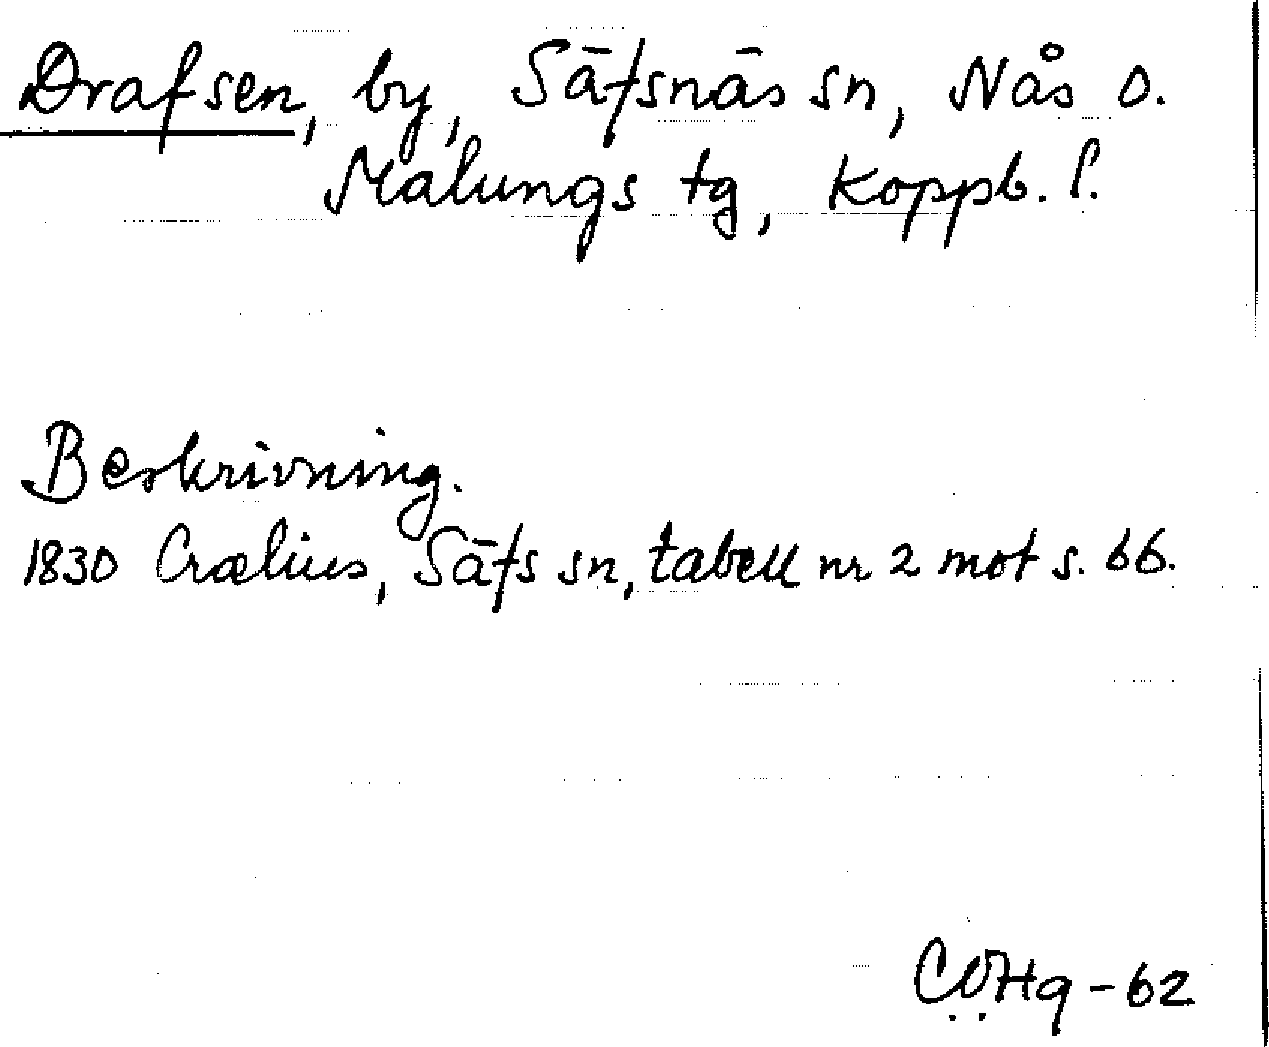 Drafsen, by, Säfsnäs sn, Nås o.
Malungs tg, Koppb. l.
Beskrivning.
1830 Crælius, Säfs sn, tabell nr 2 mot s. 66.
CÖHg - 62